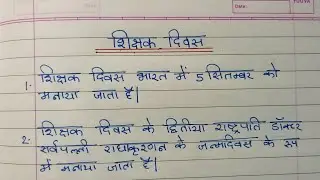 शिक्षक दिवस
1. शिक्षक दिवस भारत में 5 सितम्बर को
मनाया जाता है।
2. शिक्षक दिवस के द्वितीया राष्ट्रपति डॉक्टर
सर्वपल्ली राधाकृष्णन के जन्मदिवस के रूप
में मनाया जाता है।